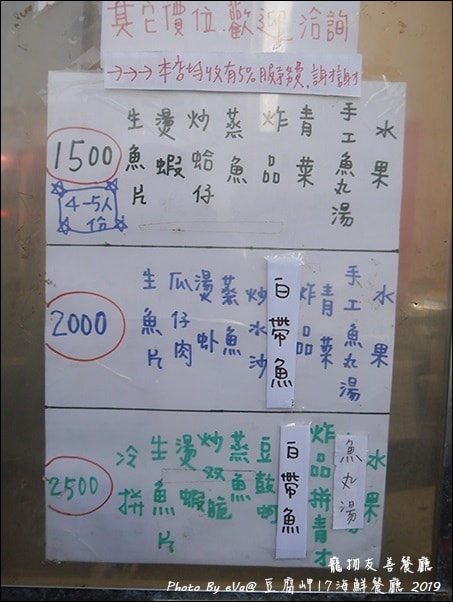 其它價位.歡迎 洽詢
→→→ 本店均收有5%服務費.請打謝才
1500
4-5人份
生魚片
燙蝦
炒蛤仔
蒸魚
炸品
青菜
手工魚丸湯
水果
2000
生魚片
瓜仔肉
燙虾
蒸魚
炒水沙
白帶魚
炸品
青菜
手工魚丸湯
水果
2500
冷拼
生魚片
燙蝦
炒双脆
蒸魚
豆鼓蚵
白帶魚
炸品拼
青才
魚丸湯
水果
寵物友善餐廳
Photo By eVa@ 豆腐岬17海鮮餐廳 2019